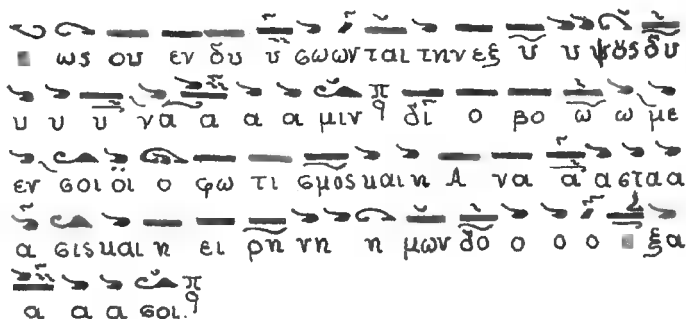 ως ου εν δυ υ σωωνται την εξ υ υ ψȣς δυ
υ υ υ να α α α μιν π̣ϥ δι ο βο ω ω με
εν σοι οϊ ο φω τι σμος και η Α να α α στα α
α σις και η ει ρη νη η μων δο ο ο ο ξα
α α α σοι. πϥ